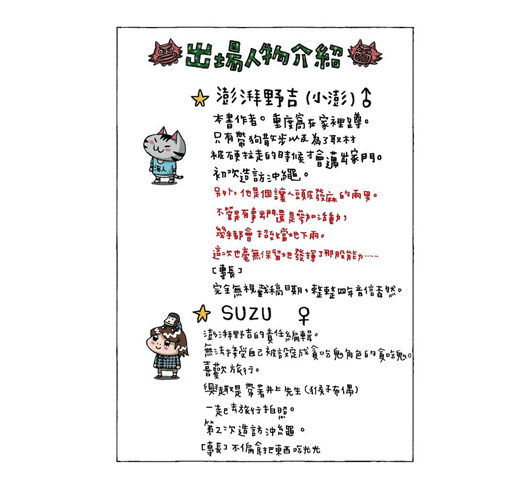 出場人物介紹
澎湃野吉(小澎)♂
本書作者。重度窩在家裡蹲。
只有帶狗散步以及為了取材
被硬拉走的時候才會邁出家門。
初次造訪沖繩。
另外,他是個讓人頭皮發麻的雨男。
不管是有事出門還是參加活動,
幾乎都會招致當地下雨。
這次也毫無保留地發揮了那股能力……
[專長]
完全無視截稿日期,整整四年音信杳然。
SUZU ♀
澎湃野吉的責任編輯。
無法接受自己被設定成貪吃鬼角色的貪吃鬼。
喜歡旅行。
興趣是帶著井上先生(猴子布偶)
一起去旅行拍照。
第2次造訪沖繩。
[專長]不偏食把東西吃光光